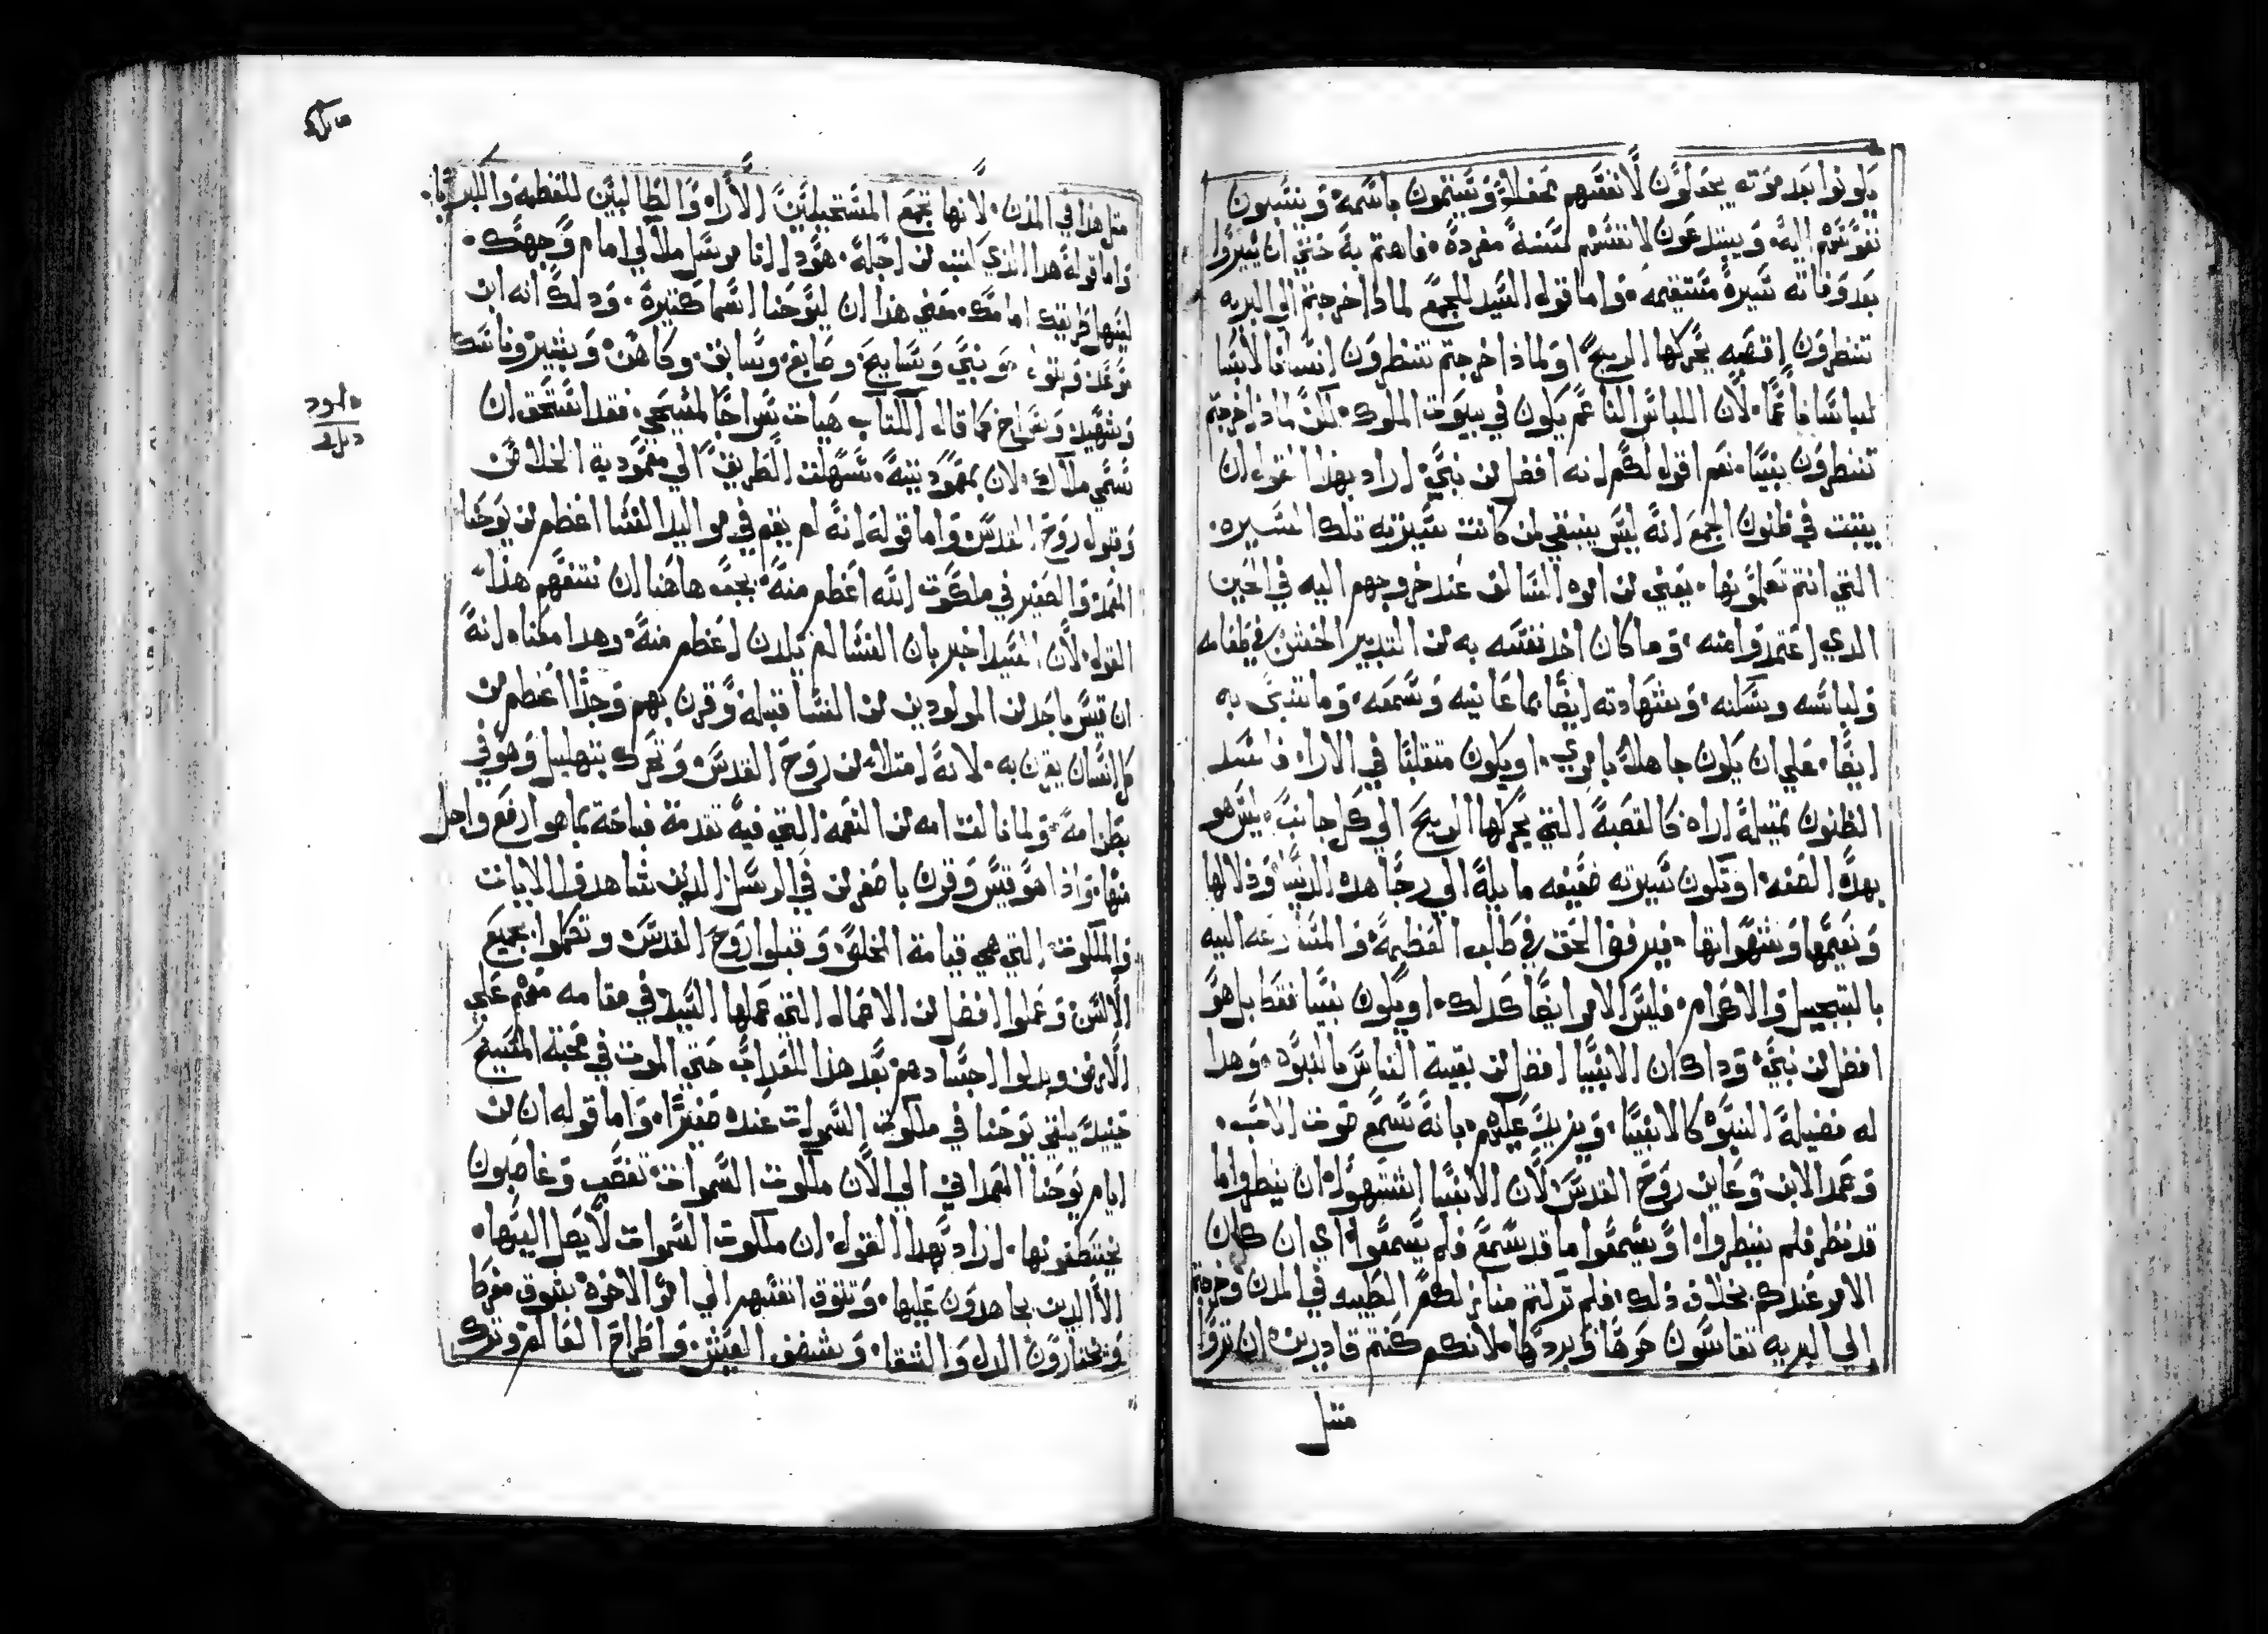 يكونوا بعد موته يجعلون لانفسهم محفلا ويسمون باسمه وينسبون
نفوسهم اليه ويبتدعون لانفسهم سنة مفردة فاهتم به حتي ان يسيروا
بعد وفاته سيرة مستقيمه واما قول السيد للجمع لماذا خرجتم الي البريه
تنظرون اقصبه يحركها الريح او لماذا خرجتم تنظرون انسانا لابسا
لباسا ناعما لان اللباس الناعم يكون في بيوت الملوك لكن لماذا خرجتم
تنظرون نبيا نعم اقول لكم انه افضل من نبي اراد بهذا القول ان
يثبت في ظنون الجمع انه ليس ينبغي لمن كانت سيرته تلك السيره
التي انتم تعلمونها يعني من امره السالف عند خروجهم اليه في الحين
الدي اعتمدوا منه وما كان اخد نفسه به من التدبير الخشن في طعامه
ولباسه وسكنه وشهادته ايضا بما عاينه وسمعه وما تنبي به
ايضا علي ان يكون جاهلا بامري او يكون متقلبا في الاراء فاسد
الظنون بميله اراه كالقصبة التي يحركها الريح الي كل جانب ليس هو
بهده الصفه او تكون سيرته ضعيفه مايلة الي رجا هده الدنيا ودلالها
ونعيمها وشهواتها فيرفض الحق في طلب العظمة والمسارعه اليه
بالتبجيل والاكرام فليس الامر ايضا كدلك او يكون نبيا فقط بل هو
افضل من نبي وداك ان الانبيا افضل من بقية الناس بالنبوه وهدا
له فضيلة النبوه كالانبيا ويزيد عليهم بانه سمع صوت الاب
وعمد الابن وعاين روح القدس لان الانبيا اشتهوا ان ينظروا ما
قد نظر فلم ينظروا او يسمعوا ما قد سمع فلم يسمعوا اي ان كان
الامر عندكم بخلاف ذلك فلم تركتم منازلكم الطيبه في المدن وخرجتم
الي البريه تقاسون حرها وبردها لانكم كنتم قادرين ان تروا
مثل
مثل هذا في المدن لانها تجمع المستحيلين الاراء والطالبين للعظمه والكبريا
واما قوله هدا الذي كتب من اجله هودا انا مرسل ملاكي امام وجهك
ليسهل طريقك امامك معني هذا ان ليوحنا اسما كثيرة ودلك انه ابن
موعد ونبي وسابح وصابغ وسابق وكاهن وبشير وناسك
وشهيد وسراج كما قال الكتاب هيات سراجا لمسيحي فقد استحق ان
سمي ملاك لان بمعموديته سهلت الطريق الي معمودية الخلاص
وقبول روح القدس واما قوله انه لم يقم في مواليد النسا اعظم من يوحنا
المعمد والصغير في ملكوت الله اعظم منه يجب هاهنا ان نتفهم هذا
القول لان السيد اخبر بان النسا لم يلدن اعظم منه وهدا معناه انه
ان قيس باحد من المولودين من النسا قبله وقرن بهم وجد اعظم من
كل انسان يقرن به لانه امتلا من روح القدس وتحرك بتهليل وهو في
بطن امه ولما نالت امه من النعمه التي فيه تقدمة فباحة بما هو ارفع واجل
منها واذا هو قيس وقرن باصغر من في الرسل الدين شاهدوا الايات
والملكوت التي هي قيامة الخلق وقبلوا روح القدس وتكلموا بجميع
الالسن وعملوا افضل من الاعمال التي عملها السيد في مقامه معهم علي
الارض وبدلوا اجسادهم بعد هذا للعداب حتي الموت في محبة المسيح
حينيد يلفي يوحنا في ملكوت السموات عنده صغيرا واما قوله ان من
ايام يوحنا المعمداني الي الان ملكوت السموات تغصب وغاصبون
يختطفونها اراد بهدا القول ان ملكوت السموات لا يصل اليها
الا الدين يجاهدون عليها وتتوق انفسهم الي امر الاخرة بشوق مفرط
ويختارون الدل والشقا وشضف العيش واطراح العالم وترك